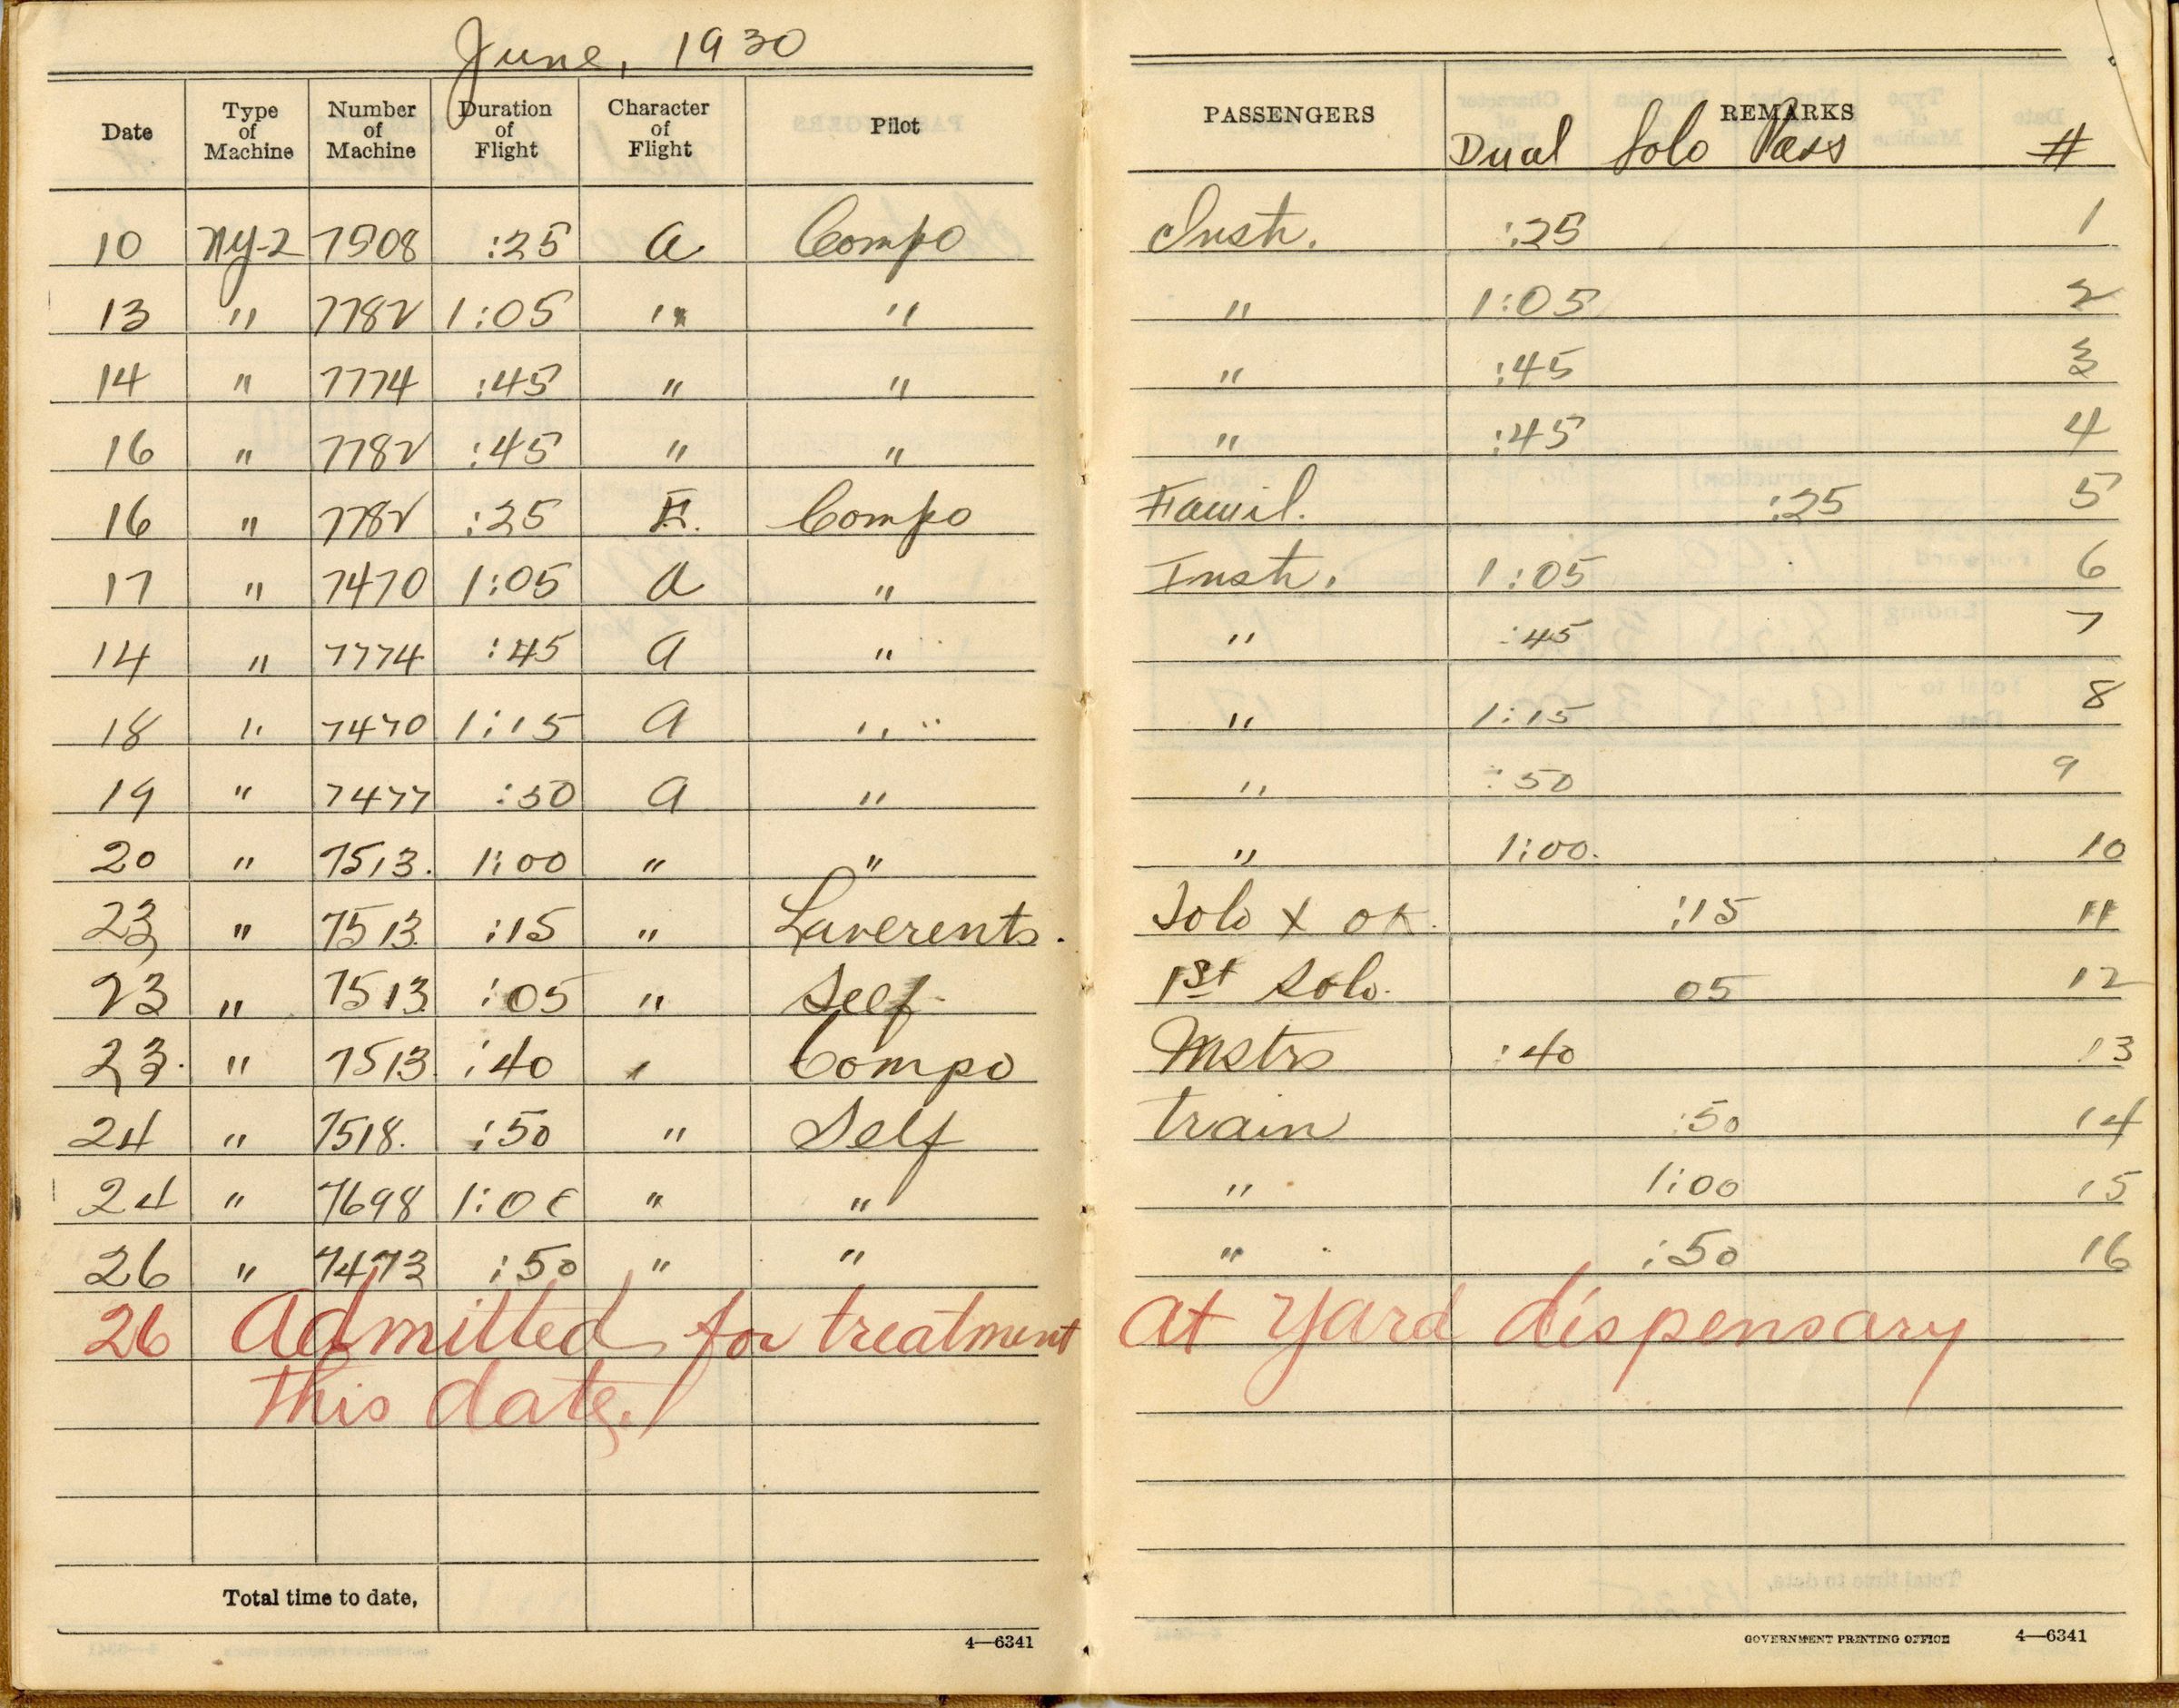 June, 1930
Date Type of Machine Number of Machine Duration of Flight Character of Flight Pilot PASSENGERS REMARKS
Dual Solo Pass #
10 NY-2 7508 :25 a Compo Instr. :25 1
13 " 7782 1:05 " " " 1:05 2
14 " 7774 :45 " " " :45 3
16 " 7782 :45 " " " :45 4
16 " 7782 :25 E. Compo Famil. :25 5
17 " 7470 1:05 a " Instr. 1:05 6
14 " 7774 :45 a " " :45 7
18 " 7470 1:15 a " " 1:15 8
19 " 7477 :50 a " " :50 9
20 " 7513. 1:00 " " " 1:00. 10
23 " 7513. :15 " Laverents. Solo X OK. :15 11
23 " 7513. :05 " Self. 1st Solo. 05 12
23. " 7513. :40 " Compo Instrs :40 13
24 " 7518. :50 " Self train :50 14
24 " 7698 1:00 " " " 1:00 15
26 " 7473 :50 " " " :50 16
26 Admitted for treatment at Yard dispensary
this date.
Total time to date,
4—6341 GOVERNMENT PRINTING OFFICE 4—6341